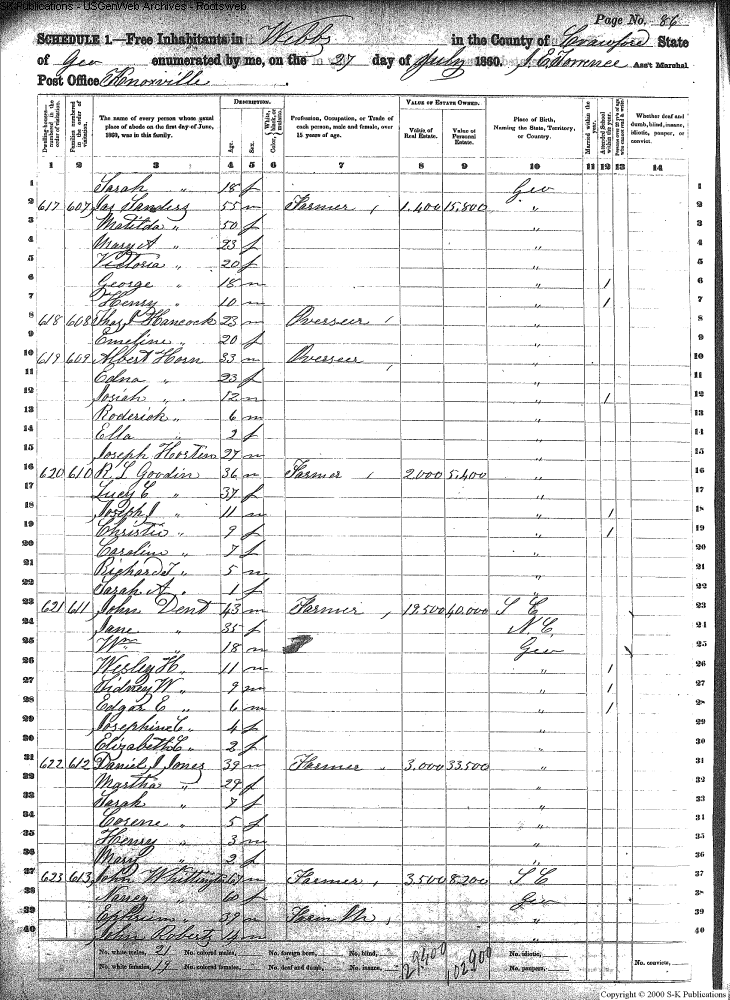 SK Publications - USGenWeb Archives - Rootsweb
Page No. 86
SCHEDULE 1.—Free Inhabitants in Webbs in the County of Crawford State
of Geo enumerated by me, on the 27 day of July 1860. J. E. Torrence Ass't Marshal
Post Office Knoxville
Dwelling-houses—numbered in the order of visitation.
Families numbered in the order of visitation.
The name of every person whose usual place of abode on the first day of June, 1860, was in this family.
DESCRIPTION.
Age.
Sex.
Color, White, black, or mulatto.
Profession, Occupation, or Trade of each person, male and female, over 15 years of age.
VALUE OF ESTATE OWNED.
Value of Real Estate.
Value of Personal Estate.
Place of Birth, Naming the State, Territory, or Country.
Married within the year.
Attended School within the year.
Whether deaf and dumb, blind, insane, idiotic, pauper, or convict.
1 2 3 4 5 6 7 8 9 10 11 12 13 14
1 Sarah " 18 f Geo 1
2 617 607 Jas Sanders 55 m Farmer 1.400 15.800 " 2
3 Matilda " 50 f " 3
4 Mary A " 23 f " 4
5 Victoria " 20 f " 5
6 George " 18 m " / 6
7 Henry " 10 m " / 7
8 618 608 Thos J Hancock 23 m Overseer " 8
9 Emeline " 20 f " 9
10 619 609 Albert Horn 33 m Overseer " 10
11 Edna " 23 f " 11
12 Josiah " 12 m " / 12
13 Roderick " 6 m " 13
14 Ella " 2 f " 14
15 Joseph 27 m " 15
16 620 610 R L Goodin 36 m Farmer 2.000 5.400 " 16
17 Lucy C " 37 f " 17
18 Joseph J " 11 m " / 18
19 Christie " 9 f " / 19
20 Caroline " 7 f " 20
21 Richard T " 5 m " 21
22 Sarah A " 1 f " 22
23 621 611 John Dent 43 m Farmer 19.500 40.000 S C 23
24 Jane " 35 f N. C. 24
25 Wm " 18 m Geo 25
26 Wesley H " 11 m " / 26
27 Sidney W " 9 m " / 27
28 Edgar E " 6 m " / 28
29 Josephine C " 4 f " 29
30 Elizabeth C " 2 f " 30
31 622 612 Daniel J Jones 39 m Farmer 3.000 33.500 " 31
32 Martha " 29 f " 32
33 Sarah " 7 f " 33
34 Corene " 5 f " 34
35 Henry " 3 m " 35
36 Mary " 2 f " 36
37 623 613 John Whittington 67 m Farmer 3.500 8.200 S C 37
38 Nancy " 60 f Geo 38
39 Ephrium " 39 m Farm " 39
40 John Roberts 14 m " 40
No. white males, 21 No. colored males, No. foreign born, No. blind, 29,400 102900 No. idiotic,
No. white females, 19 No. colored females, No. deaf and dumb, No. insane, No. paupers, No. convicts,
Copyright © 2000 S-K Publications